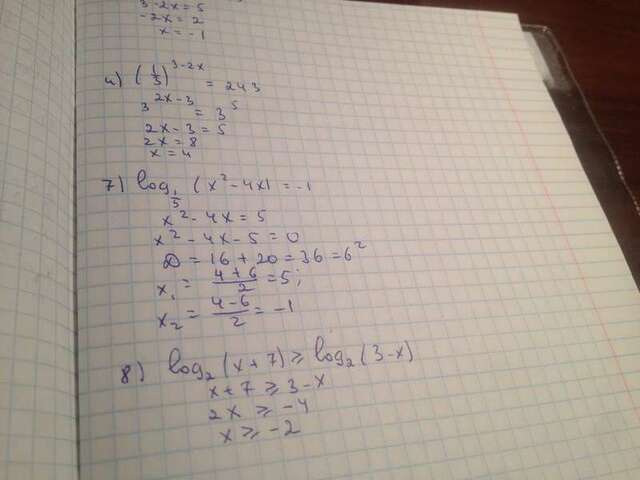 3-2x=5
-2x=2
x=-1
4) (1/3)^(3-2x) = 243
3^(2x-3) = 3^5
2x-3=5
2x=8
x=4
7) log_(1/5) (x²-4x) = -1
x²-4x=5
x²-4x-5=0
D=16+20=36=6²
x₁ = (4+6)/2 = 5;
x₂ = (4-6)/2 = -1
8) log₂(x+7) ≥ log₂(3-x)
x+7 ≥ 3-x
2x ≥ -4
x ≥ -2